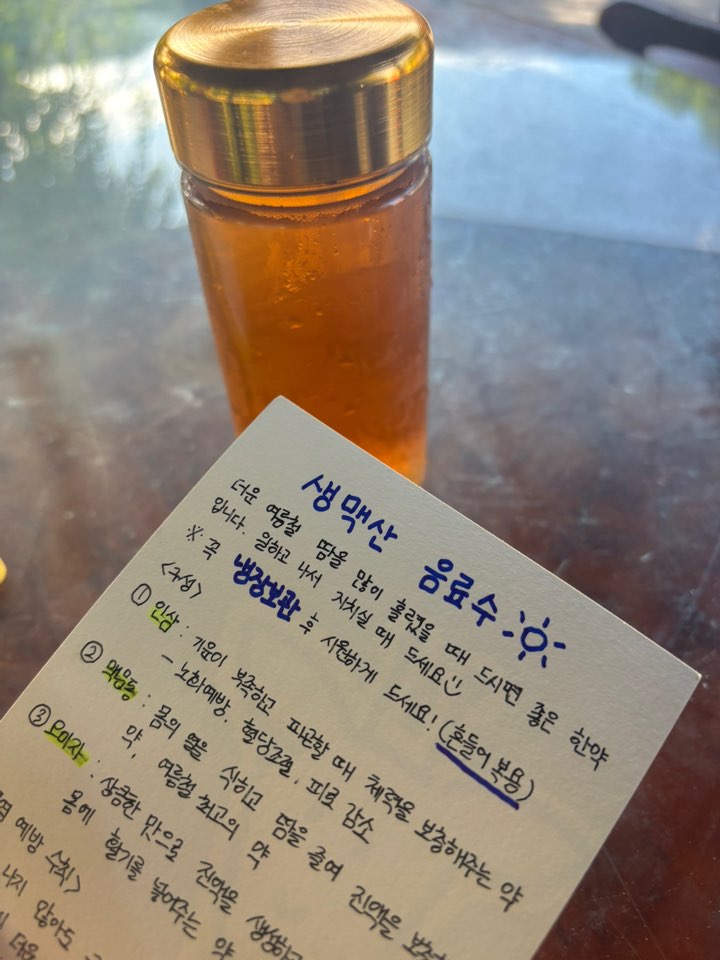 생맥산 음료수
더운 여름철 땀을 많이 흘렸을 때 드시면 좋은 한약
입니다. 일하고 나서 지치실 때 드세요
※ 꼭 냉장보관 후 시원하게 드세요! (흔들어 복용)
<구성>
① 인삼 : 기운이 부족하고 피곤할 때 체력을 보충해주는 약
- 노화예방, 혈당조절, 피로 감소
② 맥문동 : 몸의 열을 식히고 땀을 줄여 진액을 보충
약, 여름철 최고의 약
③ 오미자 : 상큼한 맛으로 진액을 생성하고
몸에 활기를 넣어주는 약
예방 수칙>
나지 않아도
더움